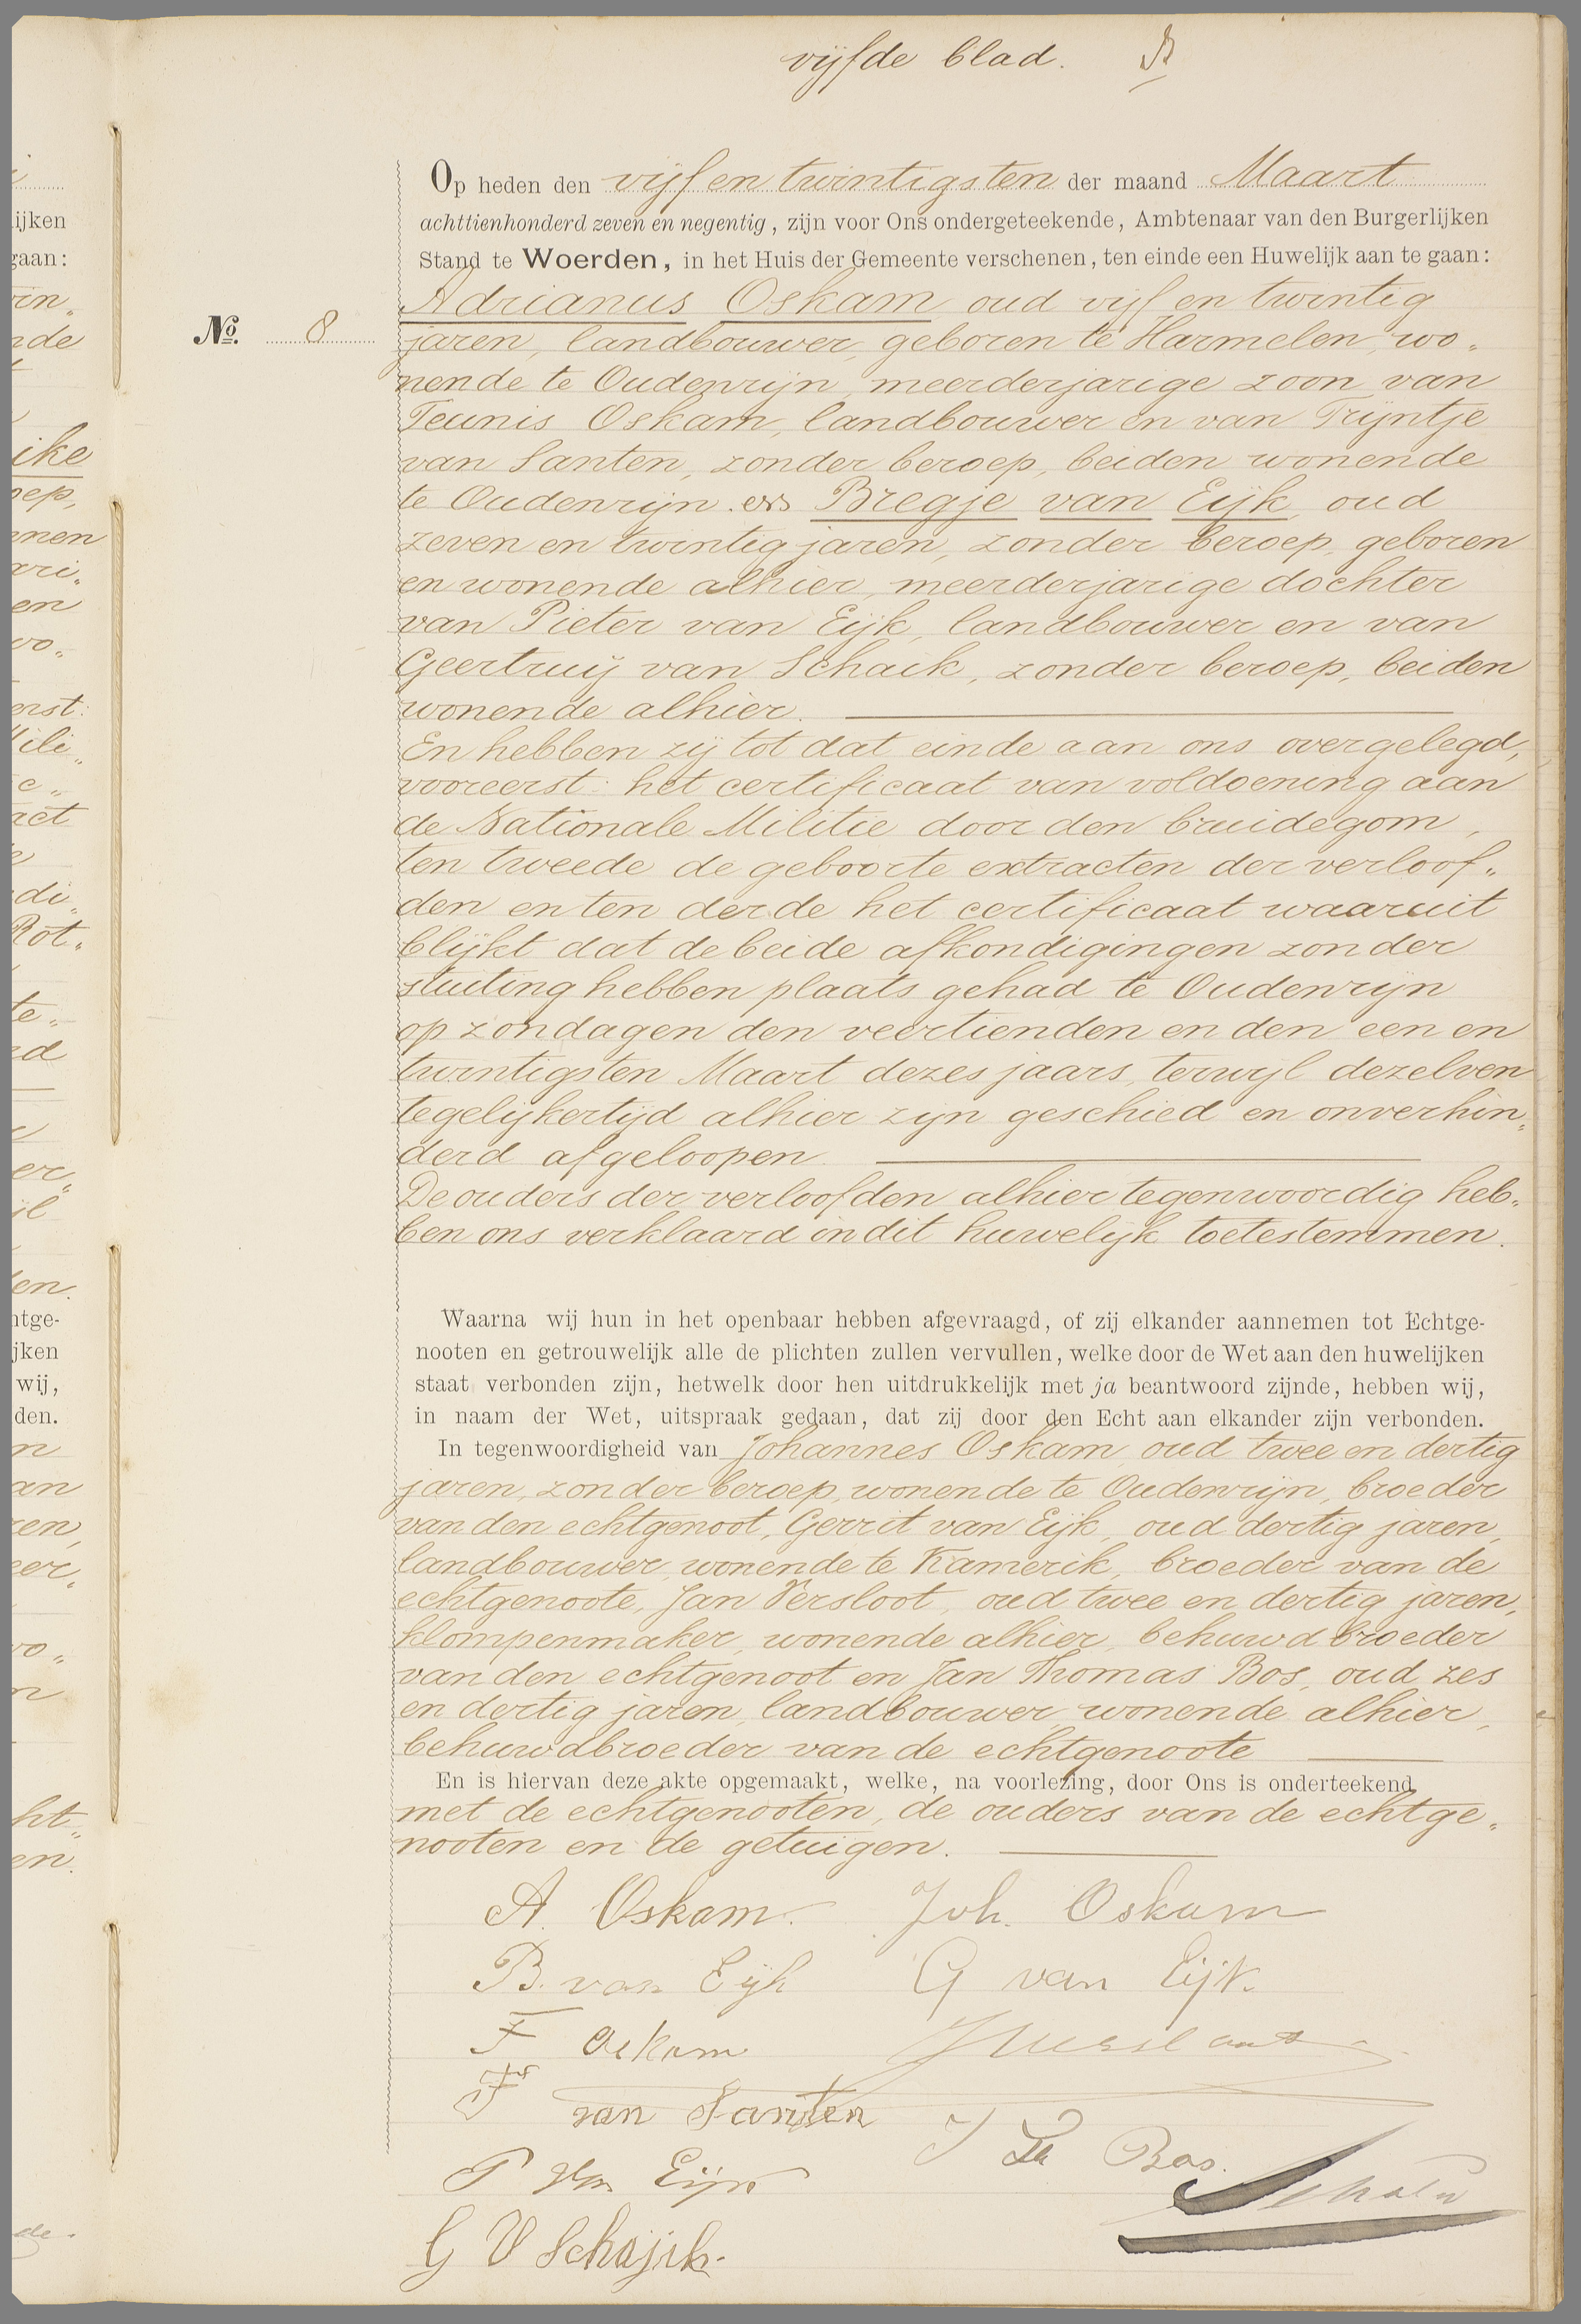 vijfde blad.
Op heden den vijf en twintigsten der maand Maart
achttienhonderd zeven en negentig, zijn voor Ons ondergeteekende, Ambtenaar van den Burgerlijken
Stand te Woerden, in het Huis der Gemeente verschenen, ten einde een Huwelijk aan te gaan:
Adrianus Oskam, oud vijf en twintig
No. 8
jaren, landbouwer, geboren te Harmelen, wo„
nende te Oudenrijn, meerderjarige zoon van
Teunis Oskam, landbouwer en van Trijntje
van Santen, zonder beroep, beiden wonende
te Oudenrijn. en Bregje van Eijk, oud
zeven en twintig jaren, zonder beroep, geboren
en wonende alhier, meerderjarige dochter
van Pieter van Eijk, landbouwer en van
Geertruij van Schaik, zonder beroep, beiden
wonende alhier.
En hebben zij tot dat einde aan ons overgelegd,
vooreerst: het certificaat van voldoening aan
de Nationale Militie door den bruidegom,
ten tweede de geboorte extracten der verloof„
den en ten derde het certificaat waaruit
blijkt dat de beide afkondigingen zonder
stuiting hebben plaats gehad te Oudenrijn
op zondagen den veertienden en den een en
twintigsten Maart dezes jaars, terwijl dezelven
tegelijkertijd alhier zijn geschied en onverhin„
derd afgeloopen.
De ouders der verloofden alhier tegenwoordig heb„
ben ons verklaard in dit huwelijk toetestemmen.
Waarna wij hun in het openbaar hebben afgevraagd, of zij elkander aannemen tot Echtge-
nooten en getrouwelijk alle de plichten zullen vervullen, welke door de Wet aan den huwelijken
staat verbonden zijn, hetwelk door hen uitdrukkelijk met ja beantwoord zijnde, hebben wij,
in naam der Wet, uitspraak gedaan, dat zij door den Echt aan elkander zijn verbonden.
In tegenwoordigheid van Johannes Oskam, oud twee en dertig
jaren, zonder beroep, wonende te Oudenrijn, broeder
van den echtgenoot, Gerrit van Eijk, oud dertig jaren,
landbouwer, wonende te Kamerik, broeder van de
echtgenoote, Jan Versloot, oud twee en dertig jaren,
klompenmaker, wonende alhier, behuwdbroeder
van den echtgenoot en Jan Thomas Bos, oud zes
en dertig jaren, landbouwer, wonende alhier,
behuwdbroeder van de echtgenoote
En is hiervan deze akte opgemaakt, welke, na voorlezing, door Ons is onderteekend
met de echtgenooten, de ouders van de echtge„
nooten en de getuigen.
A. Oskam. Joh. Oskam
B. van Eijk G van Eijk.
T Oskam J Versloot
T van Santen
J Th Bos.
P van Eijk
G V Schajik.